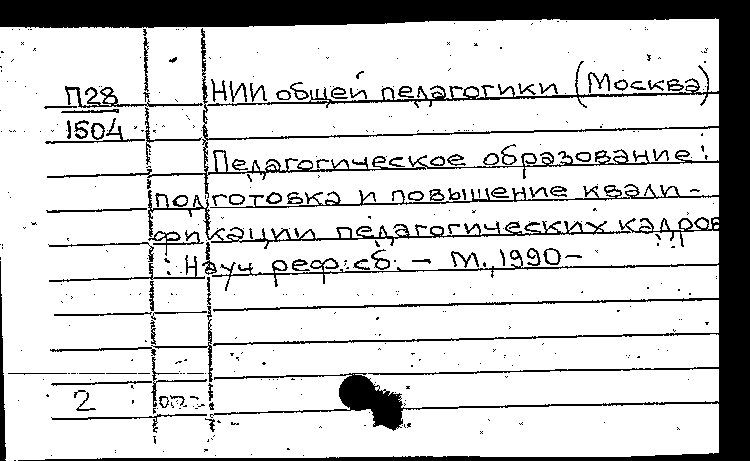 П28
1504
НИИ общей педагогики (Москва)
Педагогическое образование:
подготовка и повышение квали-
фикации педагогических кадров
: Науч. реф. сб. – М., 1990–
2